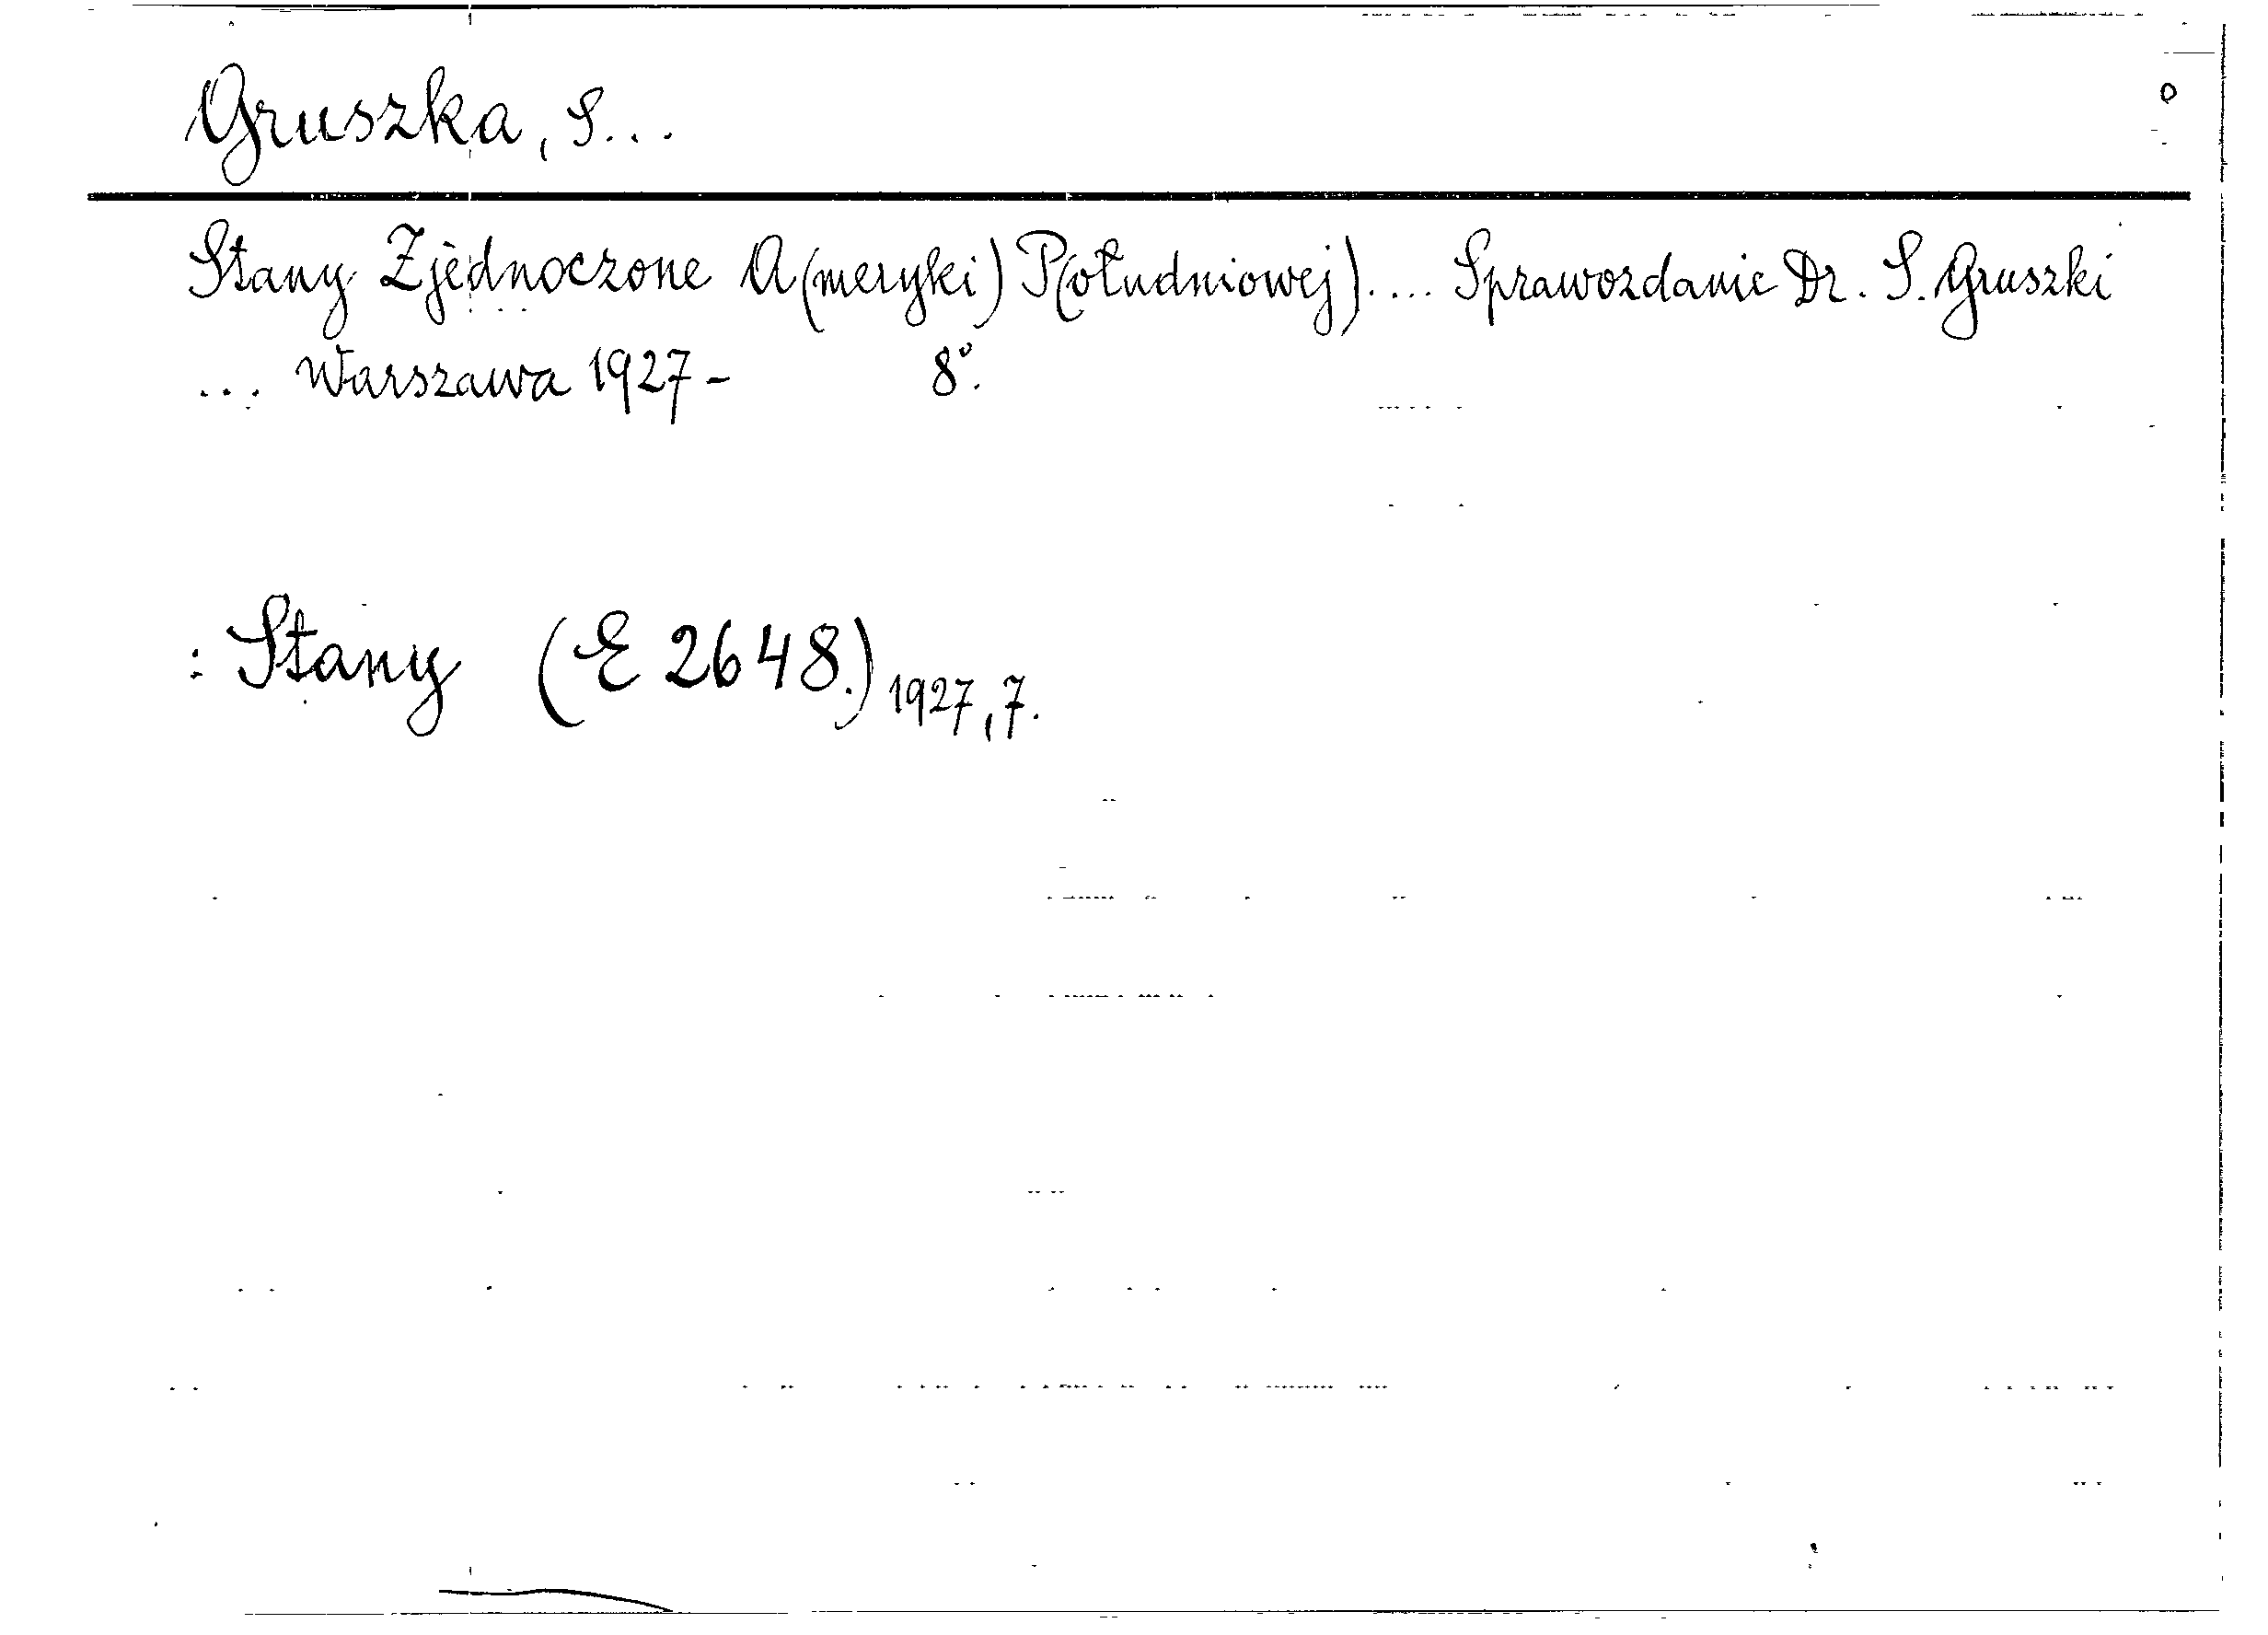 Gruszka, S...
Stany Zjednoczone A(meryki) P(ołudniowej).... Sprawozdanie Dr. S. Gruszki
... Warszawa 1927- 8°.
: Stany (E 2648.) 1927,7.